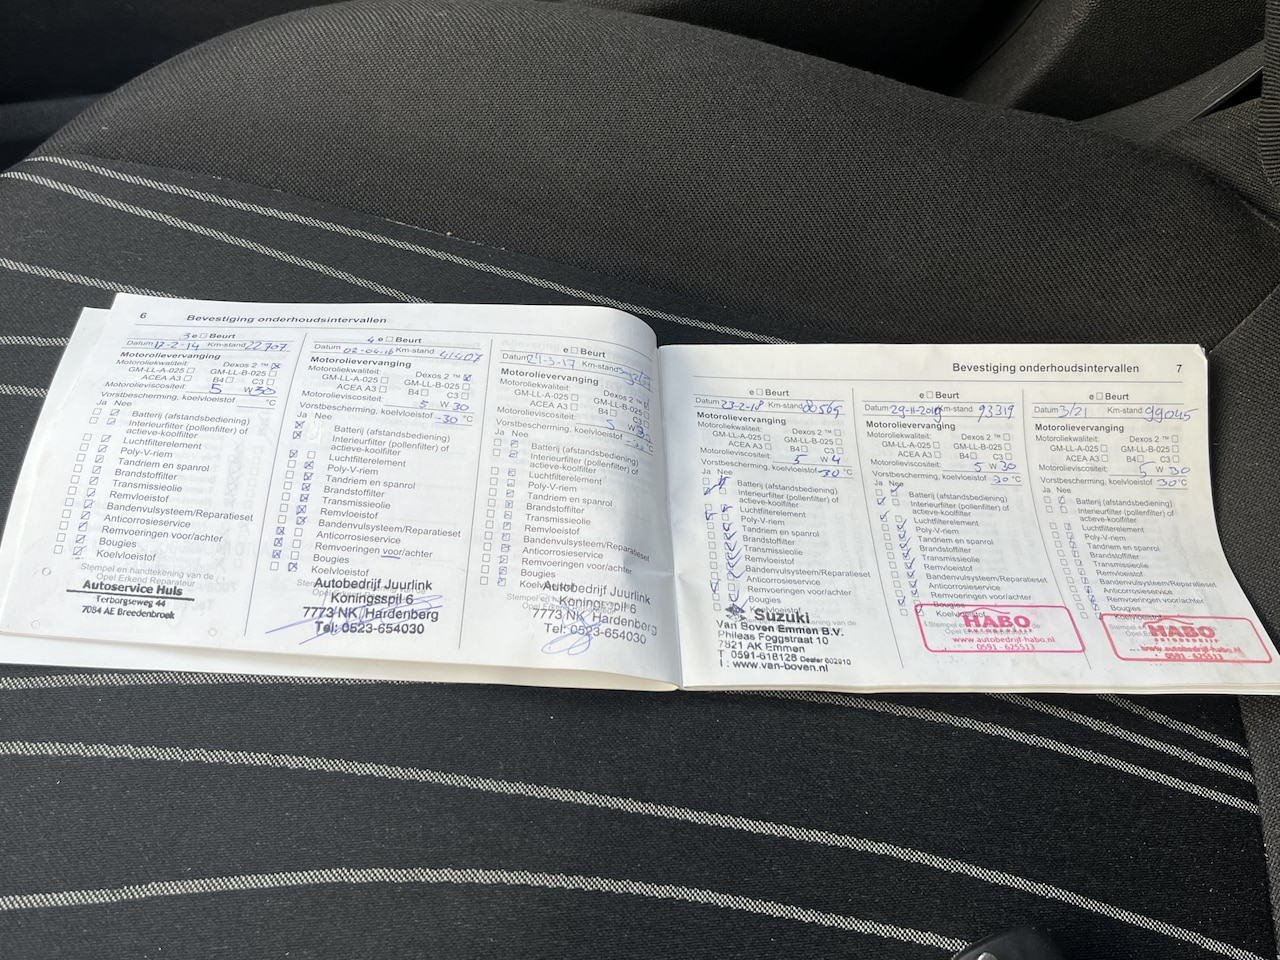 6 Bevestiging onderhoudsintervallen
3 e Beurt
Datum 17-2-14 Km-stand 22707
Motorolievervanging
Motoroliekwaliteit: Dexos 2 ™
GM-LL-A-025 GM-LL-B-025
ACEA A3 B4 C3
Motorolieviscositeit: 5 W 30
Vorstbescherming, koelvloeistof °C
Ja Nee
Batterij (afstandsbediening)
Interieurfilter (pollenfilter) of
actieve-koolfilter
Luchtfilterelement
Poly-V-riem
Tandriem en spanrol
Brandstoffilter
Transmissieolie
Remvloeistof
Bandenvulsysteem/Reparatieset
Anticorrosieservice
Remvoeringen voor/achter
Bougies
Koelvloeistof
Stempel en handtekening van de
Opel Erkend Reparateur
Autoservice Huls
Terborgseweg 44
7084 AE Breedenbroek
4 e Beurt
Datum Km-stand 41407
Motorolievervanging
Motoroliekwaliteit: Dexos 2 ™
GM-LL-A-025 GM-LL-B-025
ACEA A3 B4 C3
Motorolieviscositeit: 5 W 30
Vorstbescherming, koelvloeistof -30 °C
Ja Nee
Batterij (afstandsbediening)
Interieurfilter (pollenfilter) of
actieve-koolfilter
Luchtfilterelement
Poly-V-riem
Tandriem en spanrol
Brandstoffilter
Transmissieolie
Remvloeistof
Bandenvulsysteem/Reparatieset
Anticorrosieservice
Remvoeringen voor/achter
Bougies
Koelvloeistof
Autobedrijf Juurlink
Koningsspil 6
7773 NK Hardenberg
Tel: 0523-654030
e Beurt
Datum 21-3-17 Km-stand
Motorolievervanging
Motoroliekwaliteit: Dexos 2 ™
GM-LL-A-025 GM-LL-B-025
ACEA A3 B4 C3
Motorolieviscositeit: 5 W 30
Vorstbescherming, koelvloeistof °C
Ja Nee
Batterij (afstandsbediening)
Interieurfilter (pollenfilter) of
actieve-koolfilter
Luchtfilterelement
Poly-V-riem
Tandriem en spanrol
Brandstoffilter
Transmissieolie
Remvloeistof
Bandenvulsysteem/Reparatieset
Anticorrosieservice
Remvoeringen voor/achter
Bougies
Koelvloeistof
Autobedrijf Juurlink
Koningsspil 6
7773 NK Hardenberg
Tel: 0523-654030
Bevestiging onderhoudsintervallen 7
e Beurt
Datum 23-2-18 Km-stand 80569
Motorolievervanging
Motoroliekwaliteit: Dexos 2 ™
GM-LL-A-025 GM-LL-B-025
ACEA A3 B4 C3
Motorolieviscositeit: 5 W 4
Vorstbescherming, koelvloeistof -30 °C
Ja Nee
Batterij (afstandsbediening)
Interieurfilter (pollenfilter) of
actieve-koolfilter
Luchtfilterelement
Poly-V-riem
Tandriem en spanrol
Brandstoffilter
Transmissieolie
Remvloeistof
Bandenvulsysteem/Reparatieset
Anticorrosieservice
Remvoeringen voor/achter
Bougies
Koelvloeistof
Suzuki
Van Boven Emmen B.V.
Phileas Foggstraat 10
7821 AK Emmen
T 0591-618128 Dealer 602910
I : www.van-boven.nl
e Beurt
Datum 29-11-2019 Km-stand 93319
Motorolievervanging
Motoroliekwaliteit: Dexos 2 ™
GM-LL-A-025 GM-LL-B-025
ACEA A3 B4 C3
Motorolieviscositeit: 5 W 30
Vorstbescherming, koelvloeistof 30 °C
Ja Nee
Batterij (afstandsbediening)
Interieurfilter (pollenfilter) of
actieve-koolfilter
Luchtfilterelement
Poly-V-riem
Tandriem en spanrol
Brandstoffilter
Transmissieolie
Remvloeistof
Bandenvulsysteem/Reparatieset
Anticorrosieservice
Remvoeringen voor/achter
Bougies
Koelvloeistof
HABO
AUTOBEDRIJF
www.autobedrijf-habo.nl
0591 - 625513
e Beurt
Datum 3/21 Km-stand 99045
Motorolievervanging
Motoroliekwaliteit: Dexos 2 ™
GM-LL-A-025 GM-LL-B-025
ACEA A3 B4 C3
Motorolieviscositeit: 5 W 30
Vorstbescherming, koelvloeistof 30 °C
Ja Nee
Batterij (afstandsbediening)
Interieurfilter (pollenfilter) of
actieve-koolfilter
Luchtfilterelement
Poly-V-riem
Tandriem en spanrol
Brandstoffilter
Transmissieolie
Remvloeistof
Bandenvulsysteem/Reparatieset
Anticorrosieservice
Remvoeringen voor/achter
Bougies
Koelvloeistof
HABO
AUTOBEDRIJF
www.autobedrijf-habo.nl
0591 - 625513